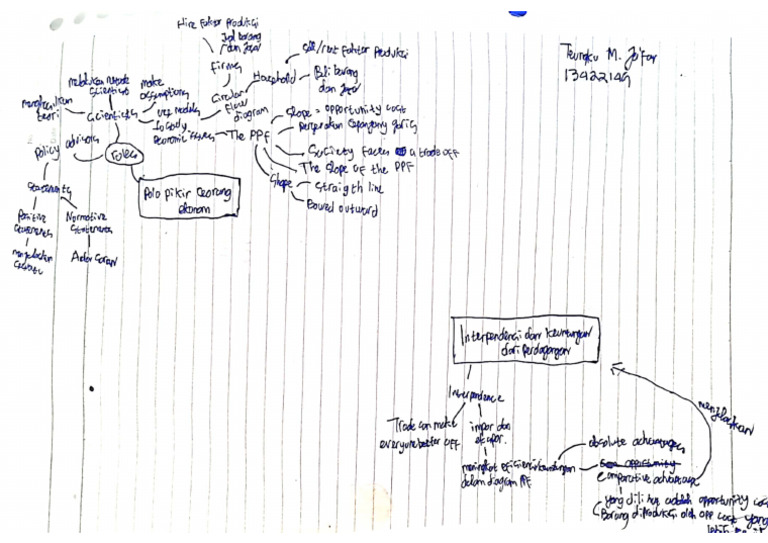 Hire faktor produksi
Jual barang
dan jasa
firms
Household
sell/rent faktor produksi
Beli barang
dan jasa
Circular
Flow
diagram
Teungku M. Ja'far
melakukan metode
scientist
make
assumptions
use models
to study
economic issues
Scientists
teori
The PPF
Slope = opportunity cost
pergerakan sepanjang garis
Society faces a trade off
The slope of the PPF
Shape
Straigth line
Bowed outward
roles
advisors
Policy
statements
Positive
statements
Normative
statements
Pola pikir seorang
ekonom
Interpendensi dan keuntungan
dari perdagangan
Interpendence
Trade can make
everyone better off
impor dan
ekspor.
dalam diagram PPF
absolute advantages
opportunity
comparative advantage
menjelaskan
yang dilihat adalah opportunity cost
Barang diproduksi oleh opp cost yang
lebih